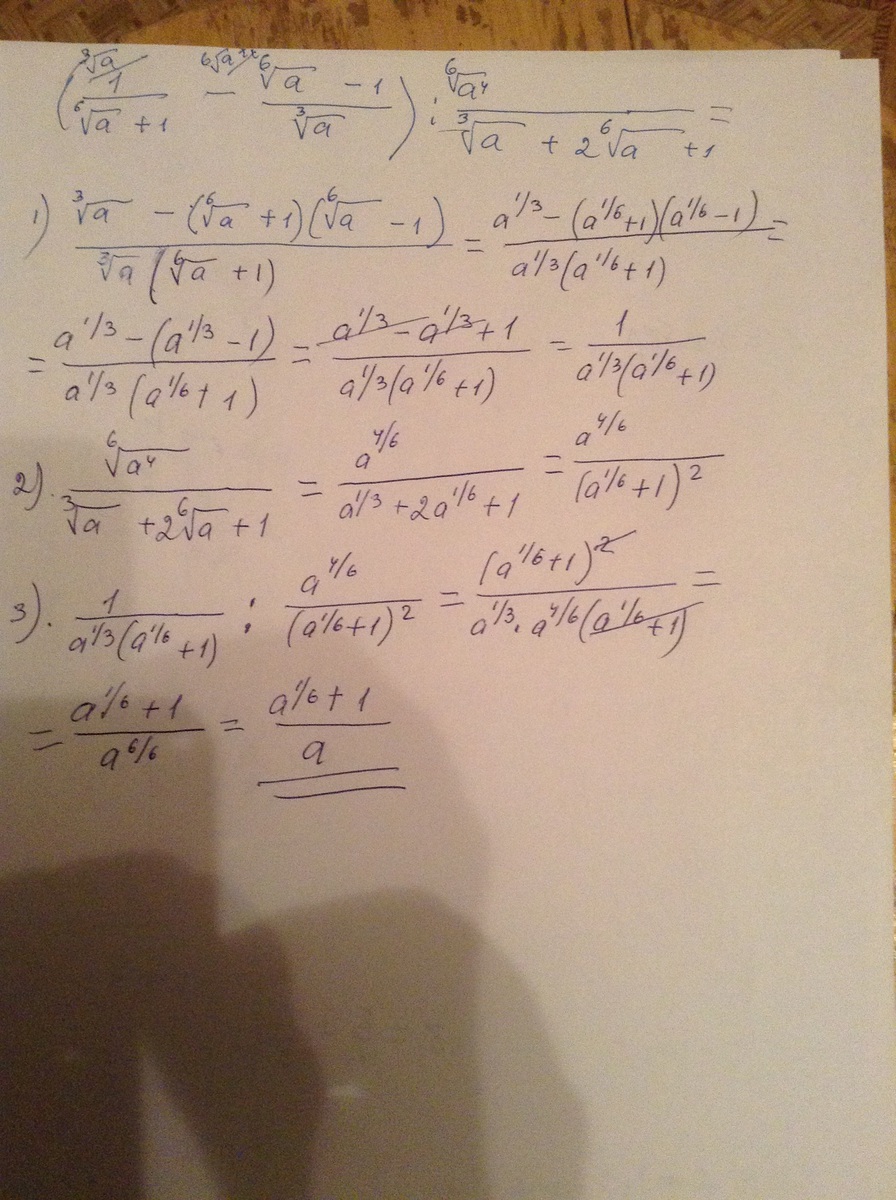 (∛a/ 1/(⁶√a + 1) − ⁶√a+1/ (⁶√a − 1)/∛a) : ⁶√a⁴/(∛a + 2⁶√a + 1) =
1) (∛a − (⁶√a + 1)(⁶√a − 1))/(∛a(⁶√a + 1)) = (a^1/3 − (a^1/6 + 1)(a^1/6 − 1))/(a^1/3(a^1/6 + 1)) =
= (a^1/3 − (a^1/3 − 1))/(a^1/3(a^1/6 + 1)) = (a^1/3 − a^1/3 + 1)/(a^1/3(a^1/6 + 1)) = 1/(a^1/3(a^1/6 + 1))
2). ⁶√a⁴/(∛a + 2⁶√a + 1) = a^4/6/(a^1/3 + 2a^1/6 + 1) = a^4/6/(a^1/6 + 1)²
3). 1/(a^1/3(a^1/6 + 1)) : a^4/6/(a^1/6 + 1)² = (a^1/6 + 1)²/(a^1/3 · a^4/6(a^1/6 + 1)) =
= (a^1/6 + 1)/a^6/6 = (a^1/6 + 1)/a